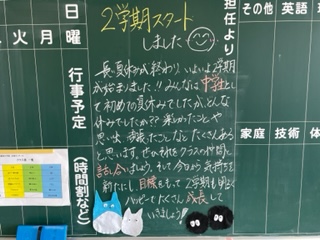 日
火 月 曜
行事予定
(時間割など)
担任より
その他 英語
家庭 技術 体
2学期スタート
しました
長い夏休みが終わり、いよいよ2学期
が始まりました!!みんなは中学生と
して初めての夏休みでしたが、どんな
休みでしたか??楽しかったことや
思い出、頑張ったことなどたくさんある
と思います。ぜひそれをクラスの仲間に
話し合いましょう。そして今日から気持ちを
新たにし、目標をもって2学期も明るく
ハッピーでたくさん成長して
いきましょう!